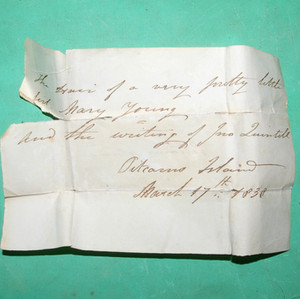 The hair of a very pretty little
girl Mary Young
and the writing of Jno Quintill
Pitcairns Island
March 17th 1838